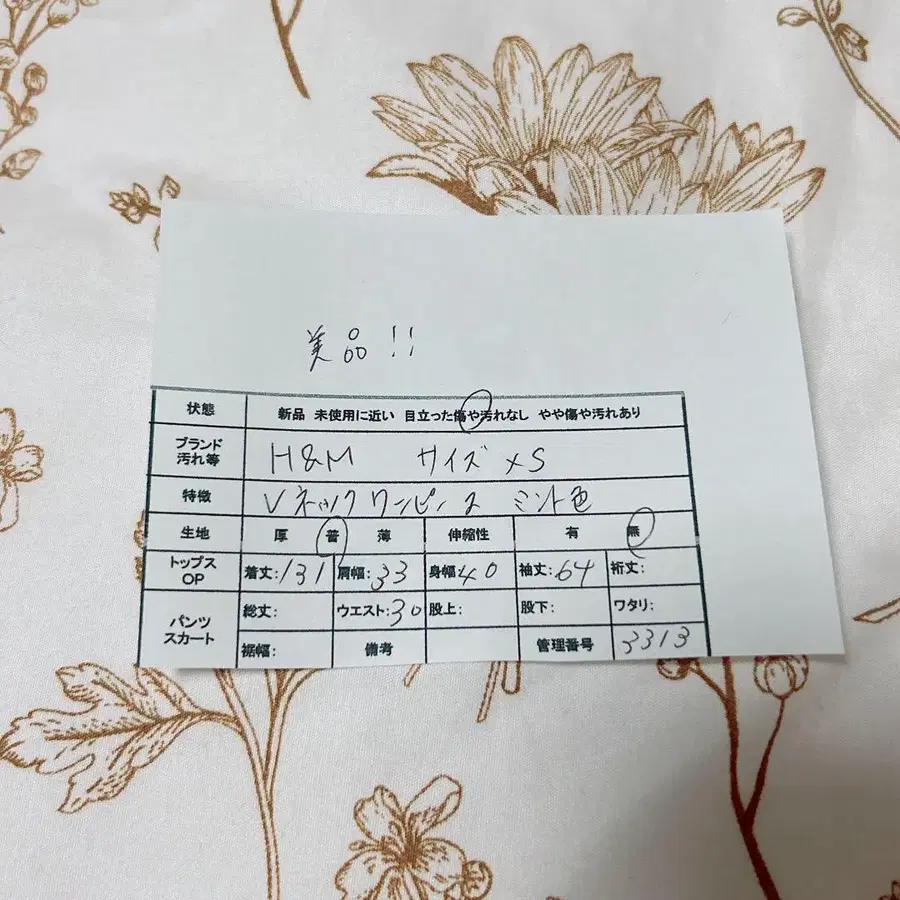 美品!!
状態 新品 未使用に近い 目立った傷や汚れなし やや傷や汚れあり
ブランド
汚れ等 H&M サイズ XS
特徴 Vネックワンピース ミント色
生地 厚 普 薄 伸縮性 有 無
トップス
OP 着丈:131 肩幅:33 身幅:40 袖丈:64 裄丈:
パンツ
スカート 総丈: ウエスト:30 股上: 股下: ワタリ:
裾幅: 備考 管理番号 3313